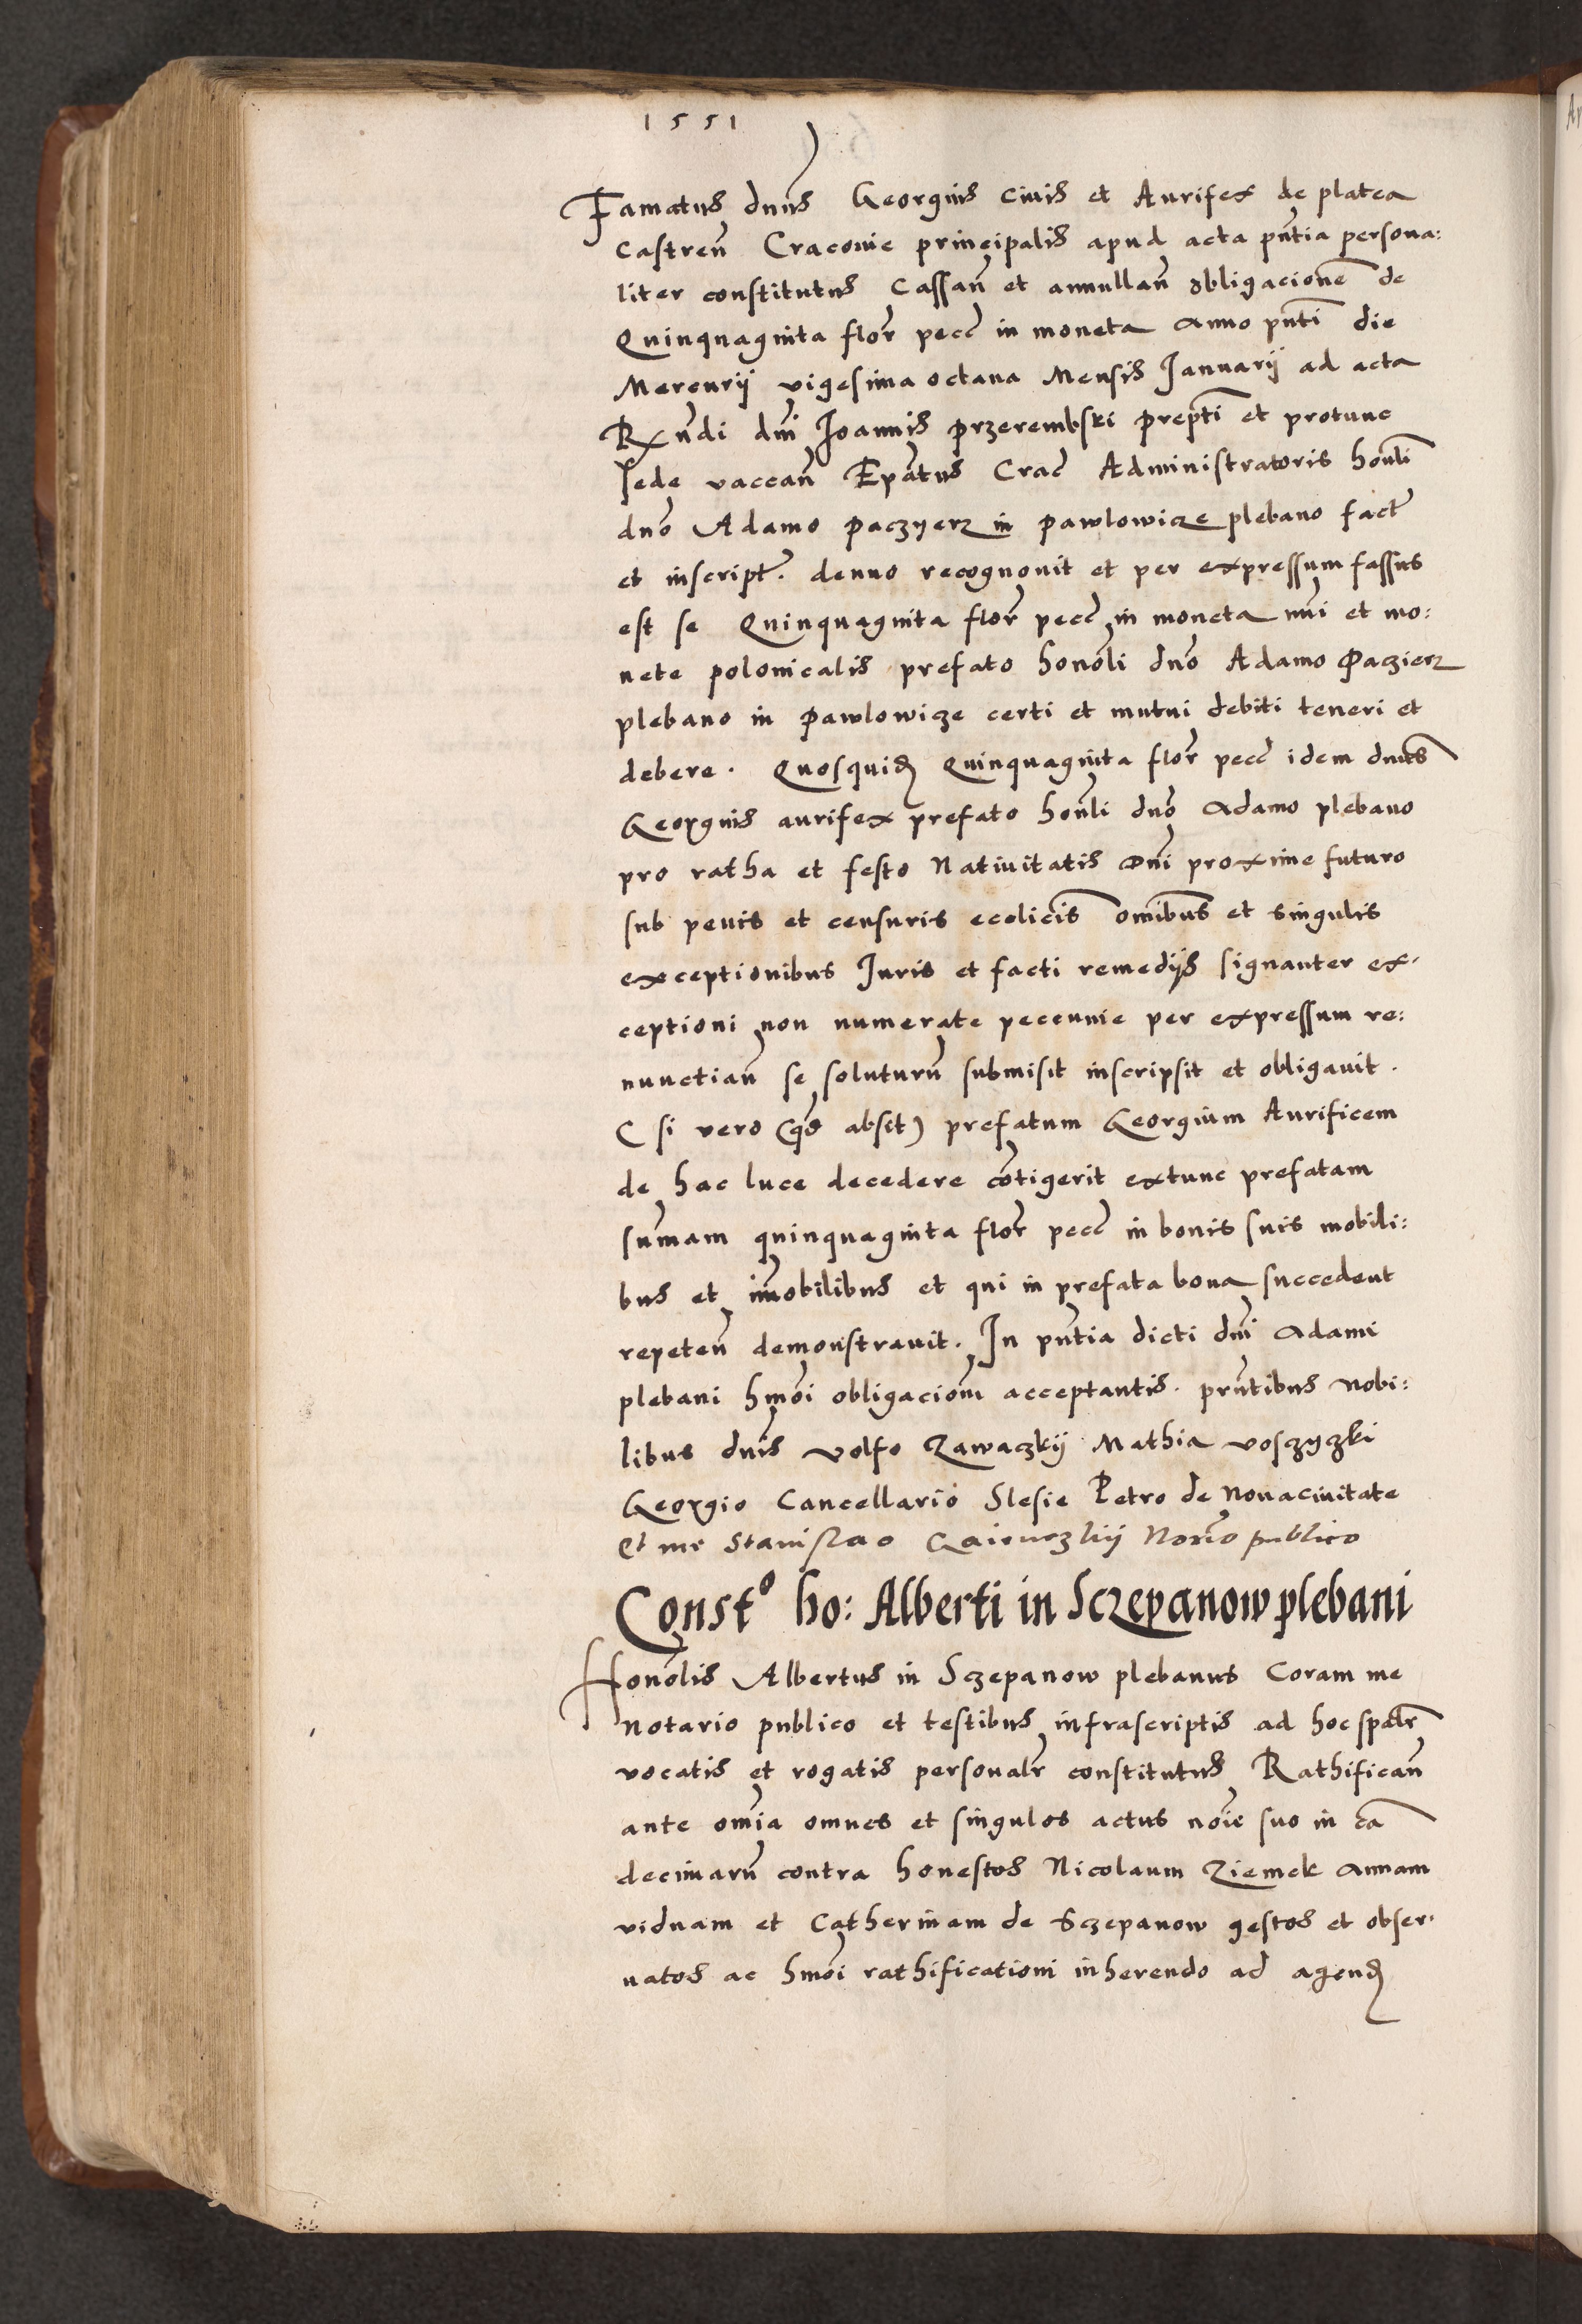 1551
Famatus dnus Georgius civis et Aurifex de platea
Castren Craconie principalis apud acta pntia persona:
liter constitutus Cassan et annullan obligacionem de
Quinquaginta flor pecc in moneta Anno pnti die
Mercurij vigesima octava Mensis Ianuarij ad acta
Rxndi dni Joannis przerembski prepti et protunc
sede vaccan Epatus Crac Administratoris honli
dno Adamo paczyerz in pawlowicze plebano fact
et inscript. denuo recognovit et per expressum fassus
est se Quinquaginta flor pecc in moneta nui et mo:
nete polonicalis prefato honoli dno Adamo Paczierz
plebano in pawlowicze certi et mutui debiti teneri et
debere. Quosquid Quinquaginta flor pecc idem dnus
Georgius aurifex prefato honli dno Adamo plebano
pro ratha et festo Nativitatis Dni proxime futuro
sub penis et censuris ecclicis omibus et singulis
exceptionibus Juris et facti remedijs signanter ex-
ceptioni non numerate peccunie per expressum re:
nunctian se soluturu submisit inscripsit et obligavit.
C si vero (qd absit) prefatum Georgium Aurificem
de hac luce decedere cotigerit extunc prefatam
sumam quinquaginta flor pecc in bonis suis mobili:
bus et imobilibus et qui in prefata bona succedent
repeten demonstravit. In pntia dicti dni Adami
plebani hmoi obligaciom acceptantis. prntibus Nobi:
libus dnis Volfo Zawaczkij Mathia voszyczki
Georgio Cancellario Slesie Petro de Novacivitate
Et me Stanislao Notrio publico
Const⁰ ho: Alberti in Sczepanow plebani
Honolis Albertus in Sczepanow plebanus Coram me
Notario publico et testibus infrascriptis ad hoc spalr
vocatis et rogatis personalr constitutus Rathifican
ante omia omnes et singulos actus noie suo in ca
decimaru contra honestos Nicolaum Ziemek Annam
viduam et Catherinam de Sczepanow gestos et obser-
vatos ac hmoi rathificationi inherendo ad agend